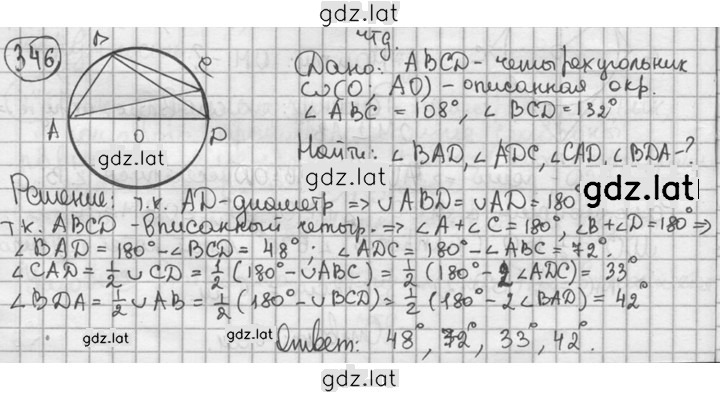 gdz.lat
346
чтд.
B
C
A
O
D
gdz.lat
Дано: ABCD - четырехугольник
ω(O; AO) - описанная окр.
∠ABC = 108°, ∠BCD = 132°
Найти: ∠BAD, ∠ADC, ∠CAD, ∠BDA - ?
gdz.lat
Решение: т.к. AD - диаметр => ∪ABD = ∪AD = 180°
т.к. ABCD - вписанный четыр. => ∠A + ∠C = 180°, ∠B + ∠D = 180° =>
∠BAD = 180° - ∠BCD = 48°; ∠ADC = 180° - ∠ABC = 72°.
∠CAD = 1/2 ∪CD = 1/2 (180° - ∪ABC) = 1/2 (180° - 2∠ADC) = 33°
∠BDA = 1/2 ∪AB = 1/2 (180° - ∪BCD) = 1/2 (180° - 2∠BAD) = 42°
gdz.lat
gdz.lat
Ответ: 48°, 72°, 33°, 42°.
gdz.lat